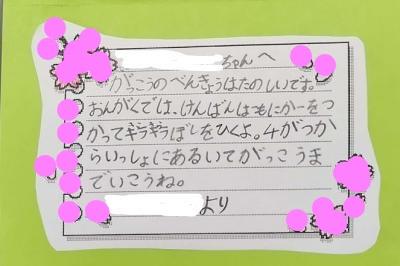 ちゃんへ
がっこうのべんきょうはたのしいです。
おんがくでは、けんばんはもにかーをつ
かってギラギラぼしをひくよ。4がつか
らいっしょにあるいてがっこうま
でいこうね。
より